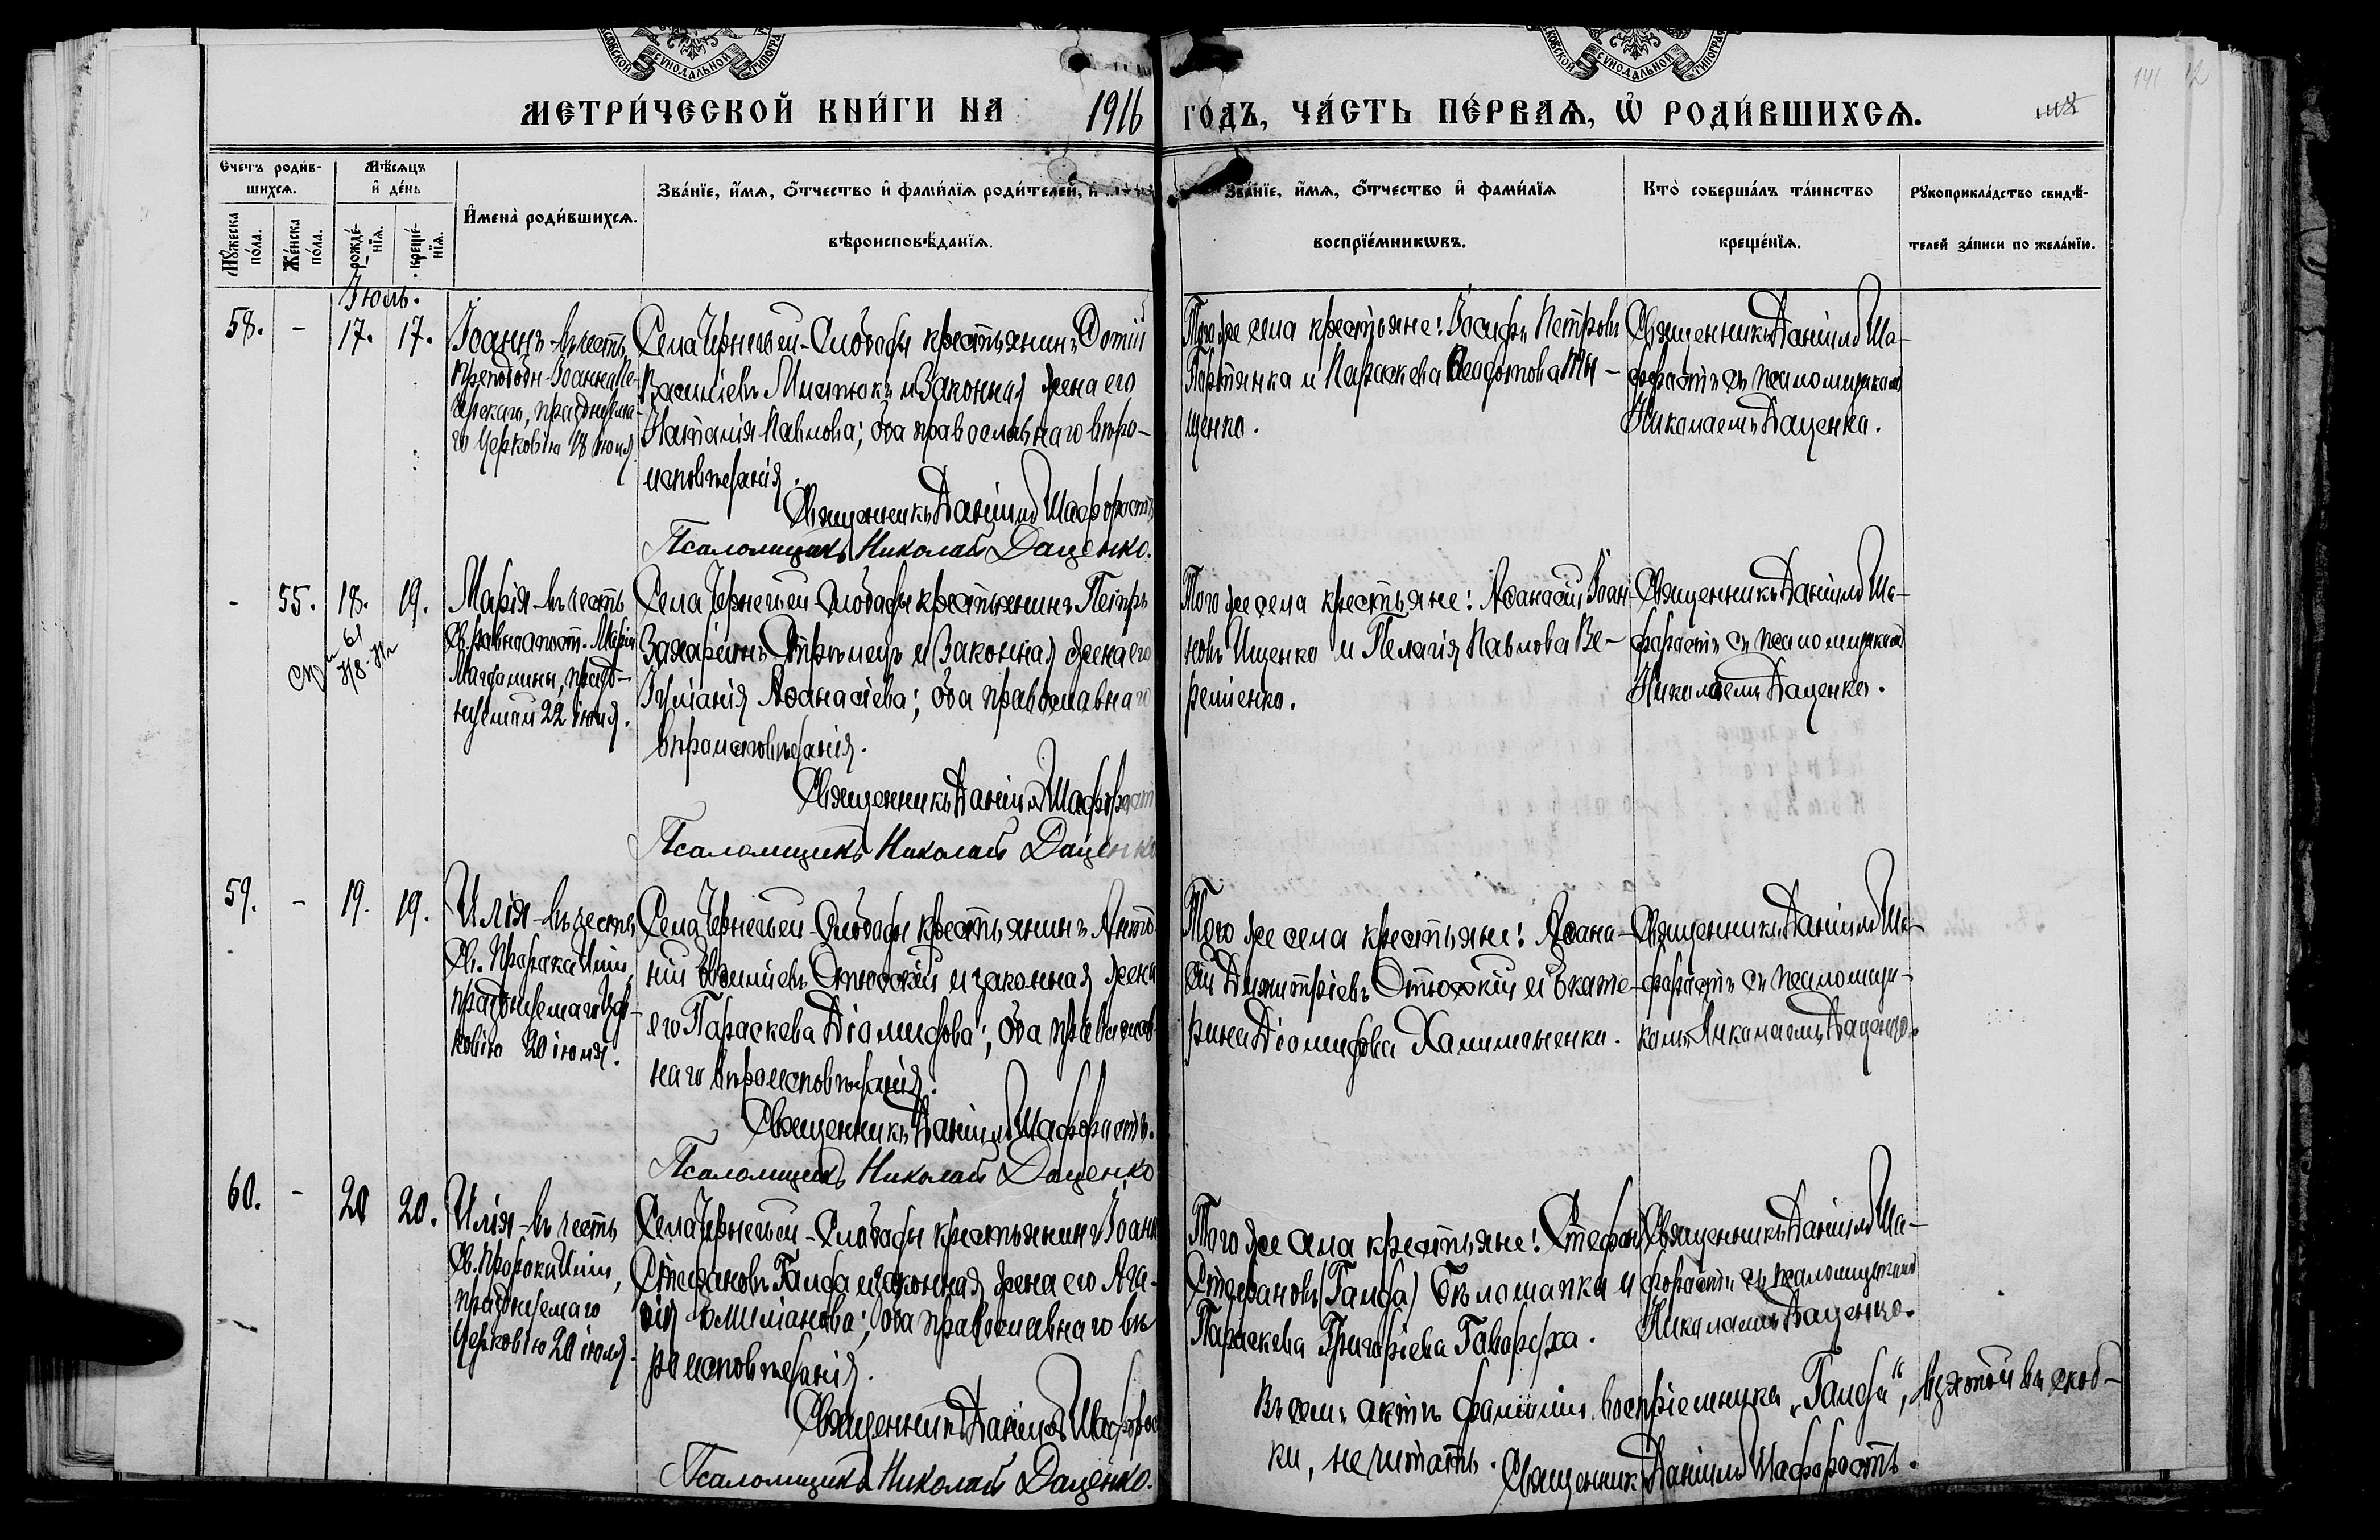 МЕТРИ́ЧЕСКОЙ КНИ́ГИ НА 1916 ГО́ДЪ, ЧА́СТЬ ПЕ́РВАѦ, Ѡ҆ РОДИ́ВШИХСѦ.
Сче́тъ роди́вшихсѧ.
Мꙋ́жеска по́ла.
Же́нска по́ла.
Мѣ́сѧцъ и҆ де́нь
рожде́нїѧ.
креще́нїѧ.
И҆мена̀ роди́вшихсѧ.
Зва́нїе, и҆́мѧ, ѻ҆́тчество и҆ фами́лїѧ роди́телей, и҆
вѣроисповѣ́данїѧ.
Зва́нїе, и҆́мѧ, ѻ҆́тчество и҆ фами́лїѧ
воспрїе́мникѡвъ.
Кто̀ соверша́лъ та́инство
креще́нїѧ.
Рꙋкоприкла́дство свидѣ́-
телей за́писи по жела́нїю.
Іюль.
58. - 17. 17.
Іоаннъ - въ честь
преподобн. Іоанна Пе-
черскаго, празднуема-
го Церковію 18 іюля.
Села Чернечьей-Слободы крестьянинъ Фотій
Василіевъ Мистюкъ и законная жена его
Наталія Павлова; оба православнаго вѣро-
исповѣданія.
Священникъ Даніилъ Шафорость
Псаломщикъ Николай Даценко.
Того же села крестьяне: Іосифъ Петровъ
и Параскева
щенко.
Священникъ Даніилъ Ша-
форость съ псаломщикомъ
Николаемъ Даценко.
- 55. 18. 19.
Марія - въ честь
Св. равноапост. Маріи
Магдалины, празд-
нуемой 22 іюля.
Села Чернечьей-Слободы крестьянинъ Петръ
Захаріинъ Стрѣлецъ и законная жена его
Іуліанія Аѳанасіева; оба православнаго
вѣроисповѣданія.
Священникъ Даніилъ Шафорость
Псаломщикъ Николай Даценко
Того же села крестьяне: Аѳанасій Іоан-
новъ Ищенко и Пелагія Павлова Ве-
ременко.
Священникъ Даніилъ Ша-
форость съ псаломщикомъ
Николаемъ Даценко.
59. - 19. 19.
Илія - въ честь
Св. Пророка Иліи,
празднуемаго Цер-
ковію 20 іюля.
Села Чернечьей-Слободы крестьянинъ Анто-
ній и законная жена
его Параскева Діомидова; оба православ-
наго вѣроисповѣданія.
Священникъ Даніилъ Шафорость.
Псаломщикъ Николай Даценко
Того же села крестьяне: Аѳана-
сій Димитріевъ и Екате-
рина Діомидова Халимоненко.
Священникъ Даніилъ Ша-
форость съ псаломщи-
комъ Николаемъ Даценко.
60. - 20 20.
Илія - въ честь
Св. Пророка Иліи,
празднуемаго
Церковію 20 іюля.
Села Чернечьей-Слободы крестьянинъ Іоаннъ
Стефановъ Галда и законная жена его Ага-
ѳія Емиліанова; оба православнаго вѣ-
роисповѣданія.
Священникъ Даніилъ Шафорость
Псаломщикъ Николай Даценко.
Того же села крестьяне: Стефанъ
Стефановъ (Галда) Бѣлошапка и
Параскева Григоріева
Священникъ Даніилъ Ша-
форость съ псаломщикомъ
Николаемъ Даценко.
Въ семъ актѣ фамилію воспріемника „Галда“, взятой въ скоб-
ки, не читать. Священникъ Даніилъ Шафорость.